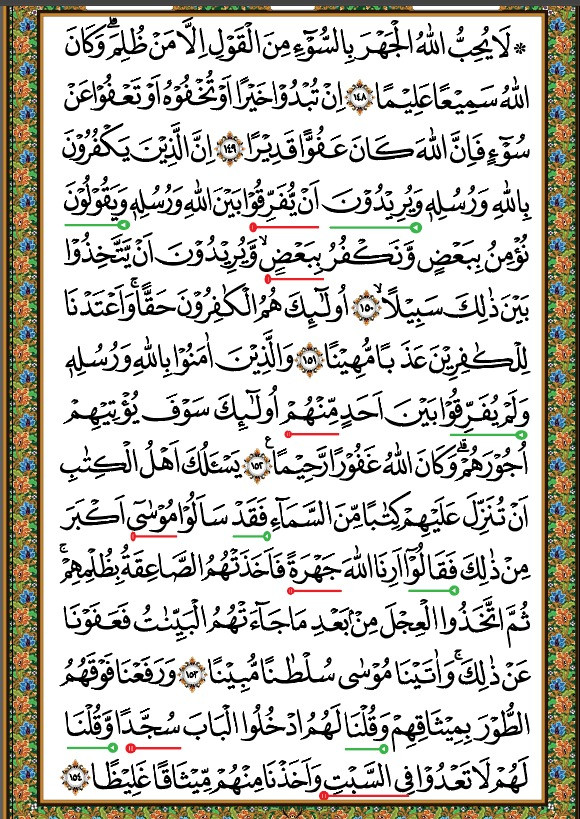 ۞ لَا يُحِبُّ اللّٰهُ الْجَهْرَ بِالسُّوْٓءِ مِنَ الْقَوْلِ اِلَّا مَنْ ظُلِمَ ؕ وَكَانَ
اللّٰهُ سَمِيْعًا عَلِيْمًا ﴿۱۴۸﴾ اِنْ تُبْدُوْا خَيْرًا اَوْ تُخْفُوْهُ اَوْ تَعْفُوْا عَنْ
سُوْٓءٍ فَاِنَّ اللّٰهَ كَانَ عَفُوًّا قَدِيْرًا ﴿۱۴۹﴾ اِنَّ الَّذِيْنَ يَكْفُرُوْنَ
بِاللّٰهِ وَرُسُلِهٖ وَيُرِيْدُوْنَ اَنْ يُّفَرِّقُوْا بَيْنَ اللّٰهِ وَرُسُلِهٖ وَيَقُوْلُوْنَ
نُؤْمِنُ بِبَعْضٍ وَّنَكْفُرُ بِبَعْضٍ ۙ وَّيُرِيْدُوْنَ اَنْ يَّتَّخِذُوْا
بَيْنَ ذٰلِكَ سَبِيْلًا ۙ ﴿۱۵۰﴾ اُولٰٓئِكَ هُمُ الْكٰفِرُوْنَ حَقًّا ۚ وَاَعْتَدْنَا
لِلْكٰفِرِيْنَ عَذَابًا مُّهِيْنًا ﴿۱۵۱﴾ وَالَّذِيْنَ اٰمَنُوْا بِاللّٰهِ وَرُسُلِهٖ
وَلَمْ يُفَرِّقُوْا بَيْنَ اَحَدٍ مِّنْهُمْ اُولٰٓئِكَ سَوْفَ يُؤْتِيْهِمْ
اُجُوْرَهُمْ ؕ وَكَانَ اللّٰهُ غَفُوْرًا رَّحِيْمًا ۧ ﴿۱۵۲﴾ يَسْـَٔلُكَ اَهْلُ الْكِتٰبِ
اَنْ تُنَزِّلَ عَلَيْهِمْ كِتٰبًا مِّنَ السَّمَآءِ فَقَدْ سَاَلُوْا مُوْسٰٓى اَكْبَرَ
مِنْ ذٰلِكَ فَقَالُوْٓا اَرِنَا اللّٰهَ جَهْرَةً فَاَخَذَتْهُمُ الصّٰعِقَةُ بِظُلْمِهِمْ ۚ
ثُمَّ اتَّخَذُوا الْعِجْلَ مِنْۢ بَعْدِ مَا جَآءَتْهُمُ الْبَيِّنٰتُ فَعَفَوْنَا
عَنْ ذٰلِكَ ۚ وَاٰتَيْنَا مُوْسٰى سُلْطٰنًا مُّبِيْنًا ﴿۱۵۳﴾ وَرَفَعْنَا فَوْقَهُمُ
الطُّوْرَ بِمِيْثَاقِهِمْ وَقُلْنَا لَهُمُ ادْخُلُوا الْبَابَ سُجَّدًا وَّقُلْنَا
لَهُمْ لَا تَعْدُوْا فِى السَّبْتِ وَاَخَذْنَا مِنْهُمْ مِّيْثَاقًا غَلِيْظًا ﴿۱۵۴﴾